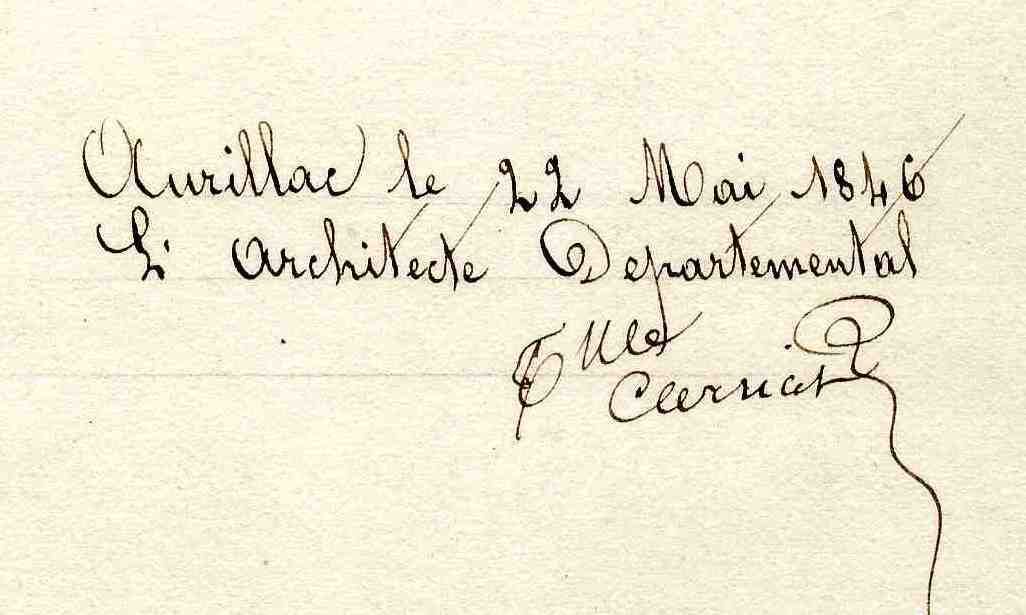 Aurillac le 22 Mai 1846
L' Architecte Departemental